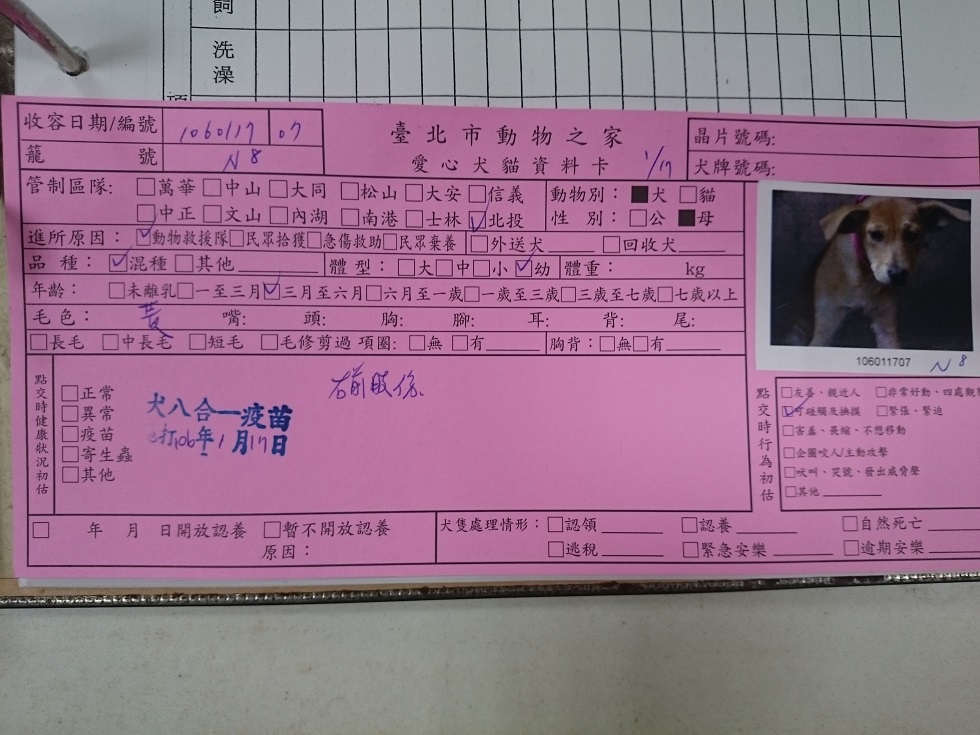 飼
洗
澡
收容日期/編號 1060117 07
籠 號 N 8
臺北市動物之家
愛心犬貓資料卡 1/17
晶片號碼:
犬牌號碼:
管制區隊: □萬華 □中山 □大同 □松山 □大安 □信義
□中正 □文山 □內湖 □南港 □士林 ☑北投
動物別: ■犬 □貓
性 別: □公 ■母
進所原因: ☑動物救援隊 □民眾拾獲 □急傷救助 □民眾棄養 □外送犬 □回收犬
品 種: ☑混種 □其他 體 型: □大 □中 □小 ☑幼 體重: kg
年齡: □未離乳 □一至三月 ☑三月至六月 □六月至一歲 □一歲至三歲 □三歲至七歲 □七歲以上
毛色: 黃 嘴: 頭: 胸: 腳: 耳: 背: 尾:
□長毛 □中長毛 □短毛 □毛修剪過 項圈: □無 □有 胸背: □無 □有
點交時健康狀況初估
□正常
□異常
□疫苗
□寄生蟲
□其他
右前肢傷
犬八合一疫苗
已打106年1月17日
106011707 N 8
點交時行為初估
□友善、親近人 □非常好動、四處觀
☑可碰觸及撫摸 □緊張、緊迫
□害羞、畏縮、不想移動
□企圖咬人/主動攻擊
□吠叫、哭號、發出威脅聲
□其他
□ 年 月 日開放認養 □暫不開放認養
原因:
犬隻處理情形: □認領 □認養 □自然死亡
□逃脫 □緊急安樂 □逾期安樂